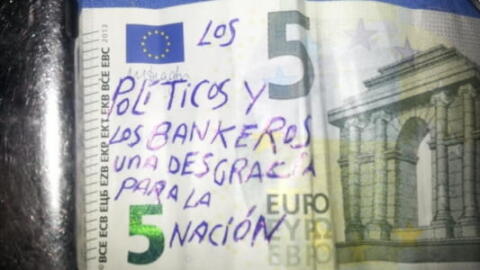 LOS
5
POLÍTICOS Y
LOS BANKEROS
UNA DESGRACIA
PARA LA
NACIÓN
5
EURO
ΕΥΡΩ
ЕВРО
BCE ECB ЕЦБ EZB EKP EKT EKB BĊE EBC 2013